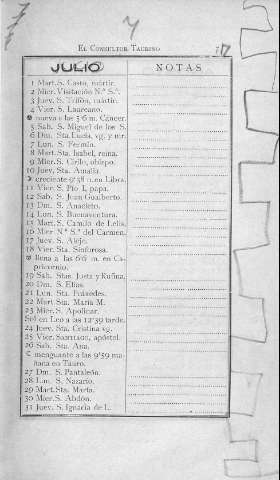 EL CONSULTOR TAURINO
17
JULIO
NOTAS
1 Mart. S. Casto, mártir.
2 Mier. Visitación N.ª S.ª.
3 Juev. S. Trifón, mártir.
4 Vier. S. Laureano.
nueva a las 3'6 m. Cáncer.
5 Sáb. S. Miguel de los S.
6 Dm. Sta. Lucía, vg. y mr.
7 Lun. S. Fermín.
8 Mart. Sta. Isabel, reina.
9 Mier. S. Cirilo, obispo.
10 Juev. Sta. Amalia.
creciente 9'38 n. en Libra.
11 Vier. S. Pío I, papa.
12 Sáb. S. Juan Gualberto.
13 Dm. S. Anacleto.
14 Lun. S. Buenaventura.
15 Mart. S. Camilo de Lelis.
16 Mier. N.ª S.ª del Carmen.
17 Juev. S. Alejo.
18 Vier. Sta. Sinforosa.
llena a las 6'6 m. en Capricornio.
19 Sáb. Stas. Justa y Rufina.
20 Dm. S. Elías.
21 Lun. Sta. Práxedes.
22 Mart. Sta. María M.
23 Mier. S. Apolinar.
Sol en Leo a las 12'39 tarde.
24 Juev. Sta. Cristina vg.
25 Vier. Santiago, apóstol.
26 Sáb. Sta. Ana.
menguante a las 9'59 mañana en Tauro.
27 Dm. S. Pantaleón.
28 Lun. S. Nazario.
29 Mart. Sta. Marta.
30 Mier. S. Abdón.
31 Juev. S. Ignacio de L.